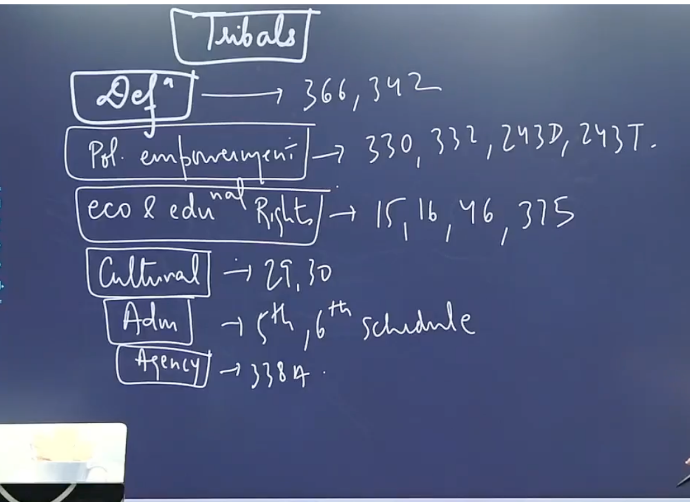 Tribals
Defⁿ → 366, 342
Pol. empowerment → 330, 332, 243D, 243T.
eco & eduⁿᵃˡ Rights → 15, 16, 46, 375
Cultural → 29, 30
Adm → 5th, 6th schedule
Agency → 338A.